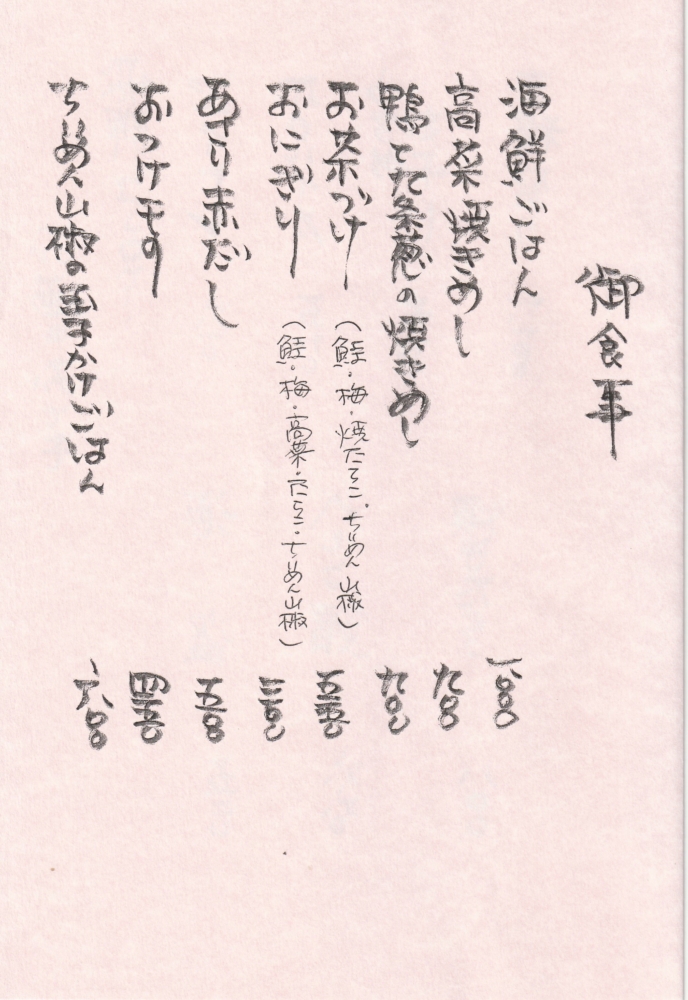 御食事
海鮮ごはん 一、〇〇〇
高菜焼きめし 九〇〇
鴨と九条葱の焼きめし 九〇〇
お茶づけ (鮭・梅・焼たらこ、ちりめん山椒) 五五〇
おにぎり (鮭・梅・高菜・たらこ・ちりめん山椒) 三〇〇
あさり赤だし 五〇〇
おつけもの 四五〇
ちりめん山椒の玉子かけごはん 六〇〇